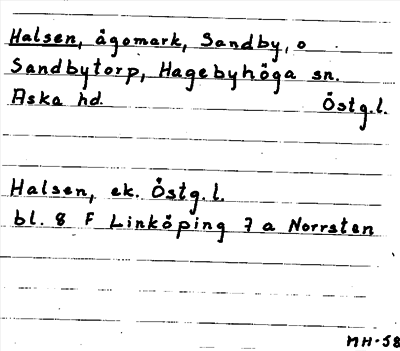 Halsen, ägomark, Sandby, o
Sandbytorp, Hagebyhöga sn.
Aska hd. Östg.l.
Halsen, ek. Östg.l.
bl. 8 F Linköping 7 a Norrsten
MH-58